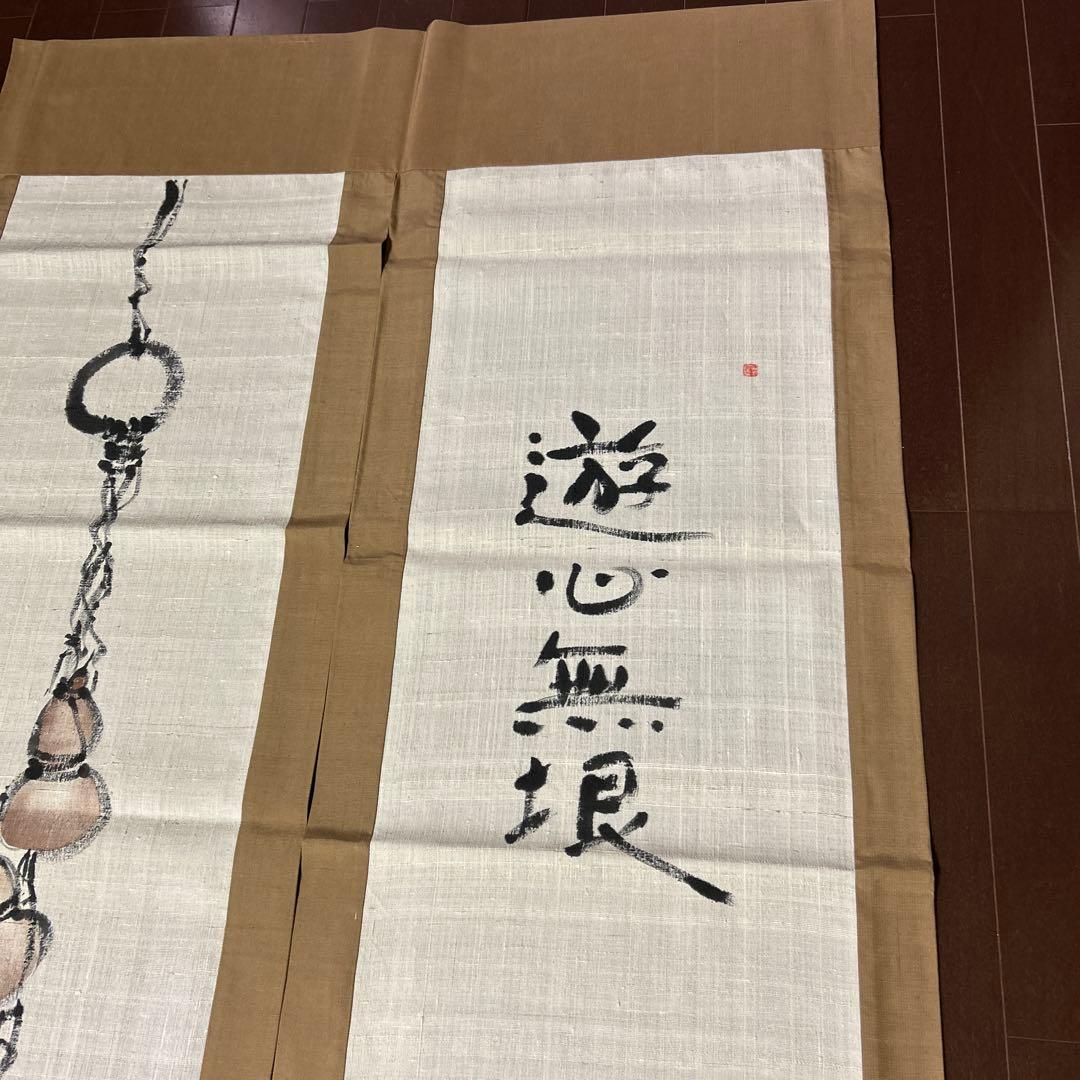 遊心無垠